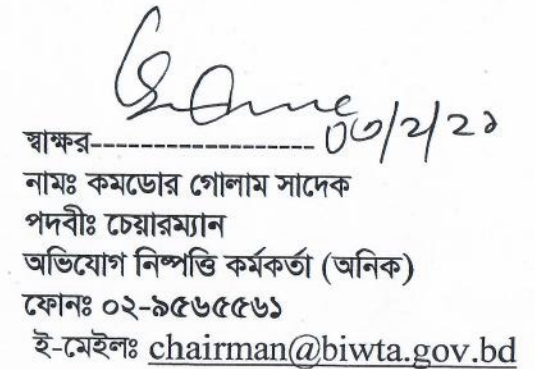 স্বাক্ষর------------------- ০৩/২/২১
নামঃ কমডোর গোলাম সাদেক
পদবীঃ চেয়ারম্যান
অভিযোগ নিষ্পত্তি কর্মকর্তা (অনিক)
ফোনঃ ০২-৯৫৬৫৫৬১
ই-মেইলঃ chairman@biwta.gov.bd